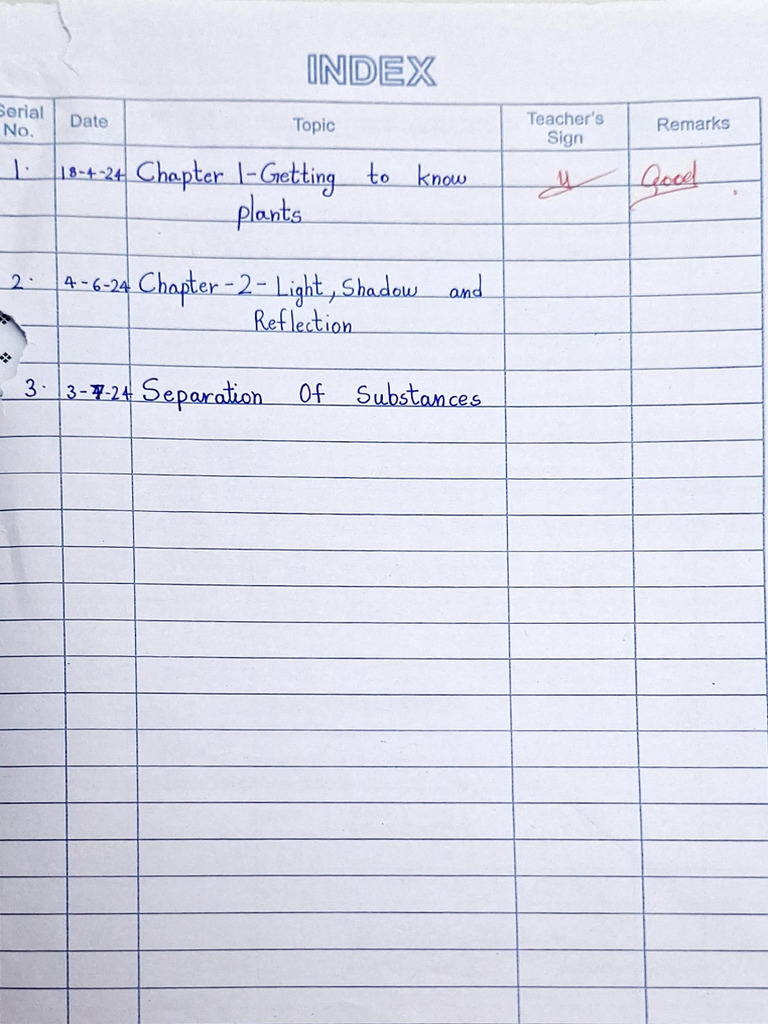 INDEX
Serial No. Date Topic Teacher's Sign Remarks
1. 18-4-24 Chapter 1-Getting to know Good
plants
2. 4-6-24 Chapter-2-Light, Shadow and
Reflection
3. 3-7-24 Separation Of Substances